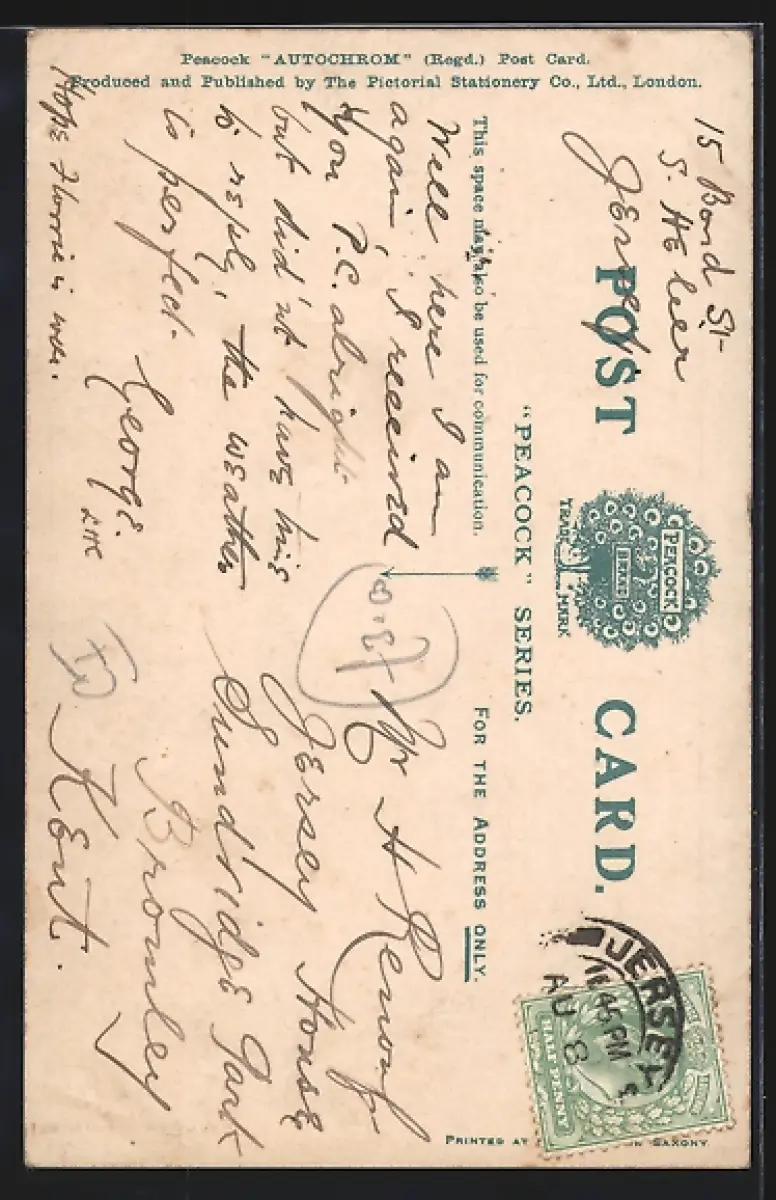 Peacock "AUTOCHROM" (Regd.) Post Card.
Produced and Published by The Pictorial Stationery Co., Ltd., London.
15 Bond St
S. Helier
Jersey
POST CARD.
PEACOCK
BRAND
TRADE MARK
"PEACOCK" SERIES.
This space may also be used for communication.
FOR THE ADDRESS ONLY.
Well here I am
again, I received
you P.C. alright
but did'nt have time
to reply, the weather
is perfect.
George.
Hope Florrie is well.
Mr H Renouf
Jersey House
Sundridge Park
Bromley
Kent.
JERSEY
45 PM
AU 8
HALF PENNY
PRINTED AT
SAXONY